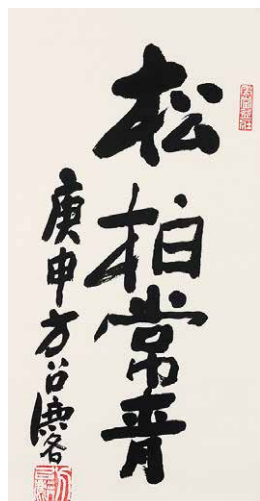 松柏常青
庚申方召麐